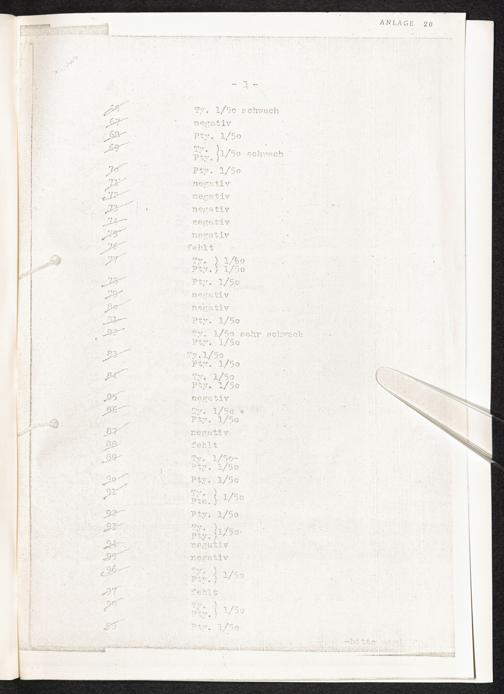 ANLAGE 20
- 3 -
66 Ty. 1/50 schwach
67 negativ
68 Pty. 1/50
69 Ty. }
Pty. } 1/50 schwach
70 Pty. 1/50
71 negativ
72 negativ
73 negativ
74 negativ
75 negativ
76 fehlt
77 Ty. } 1/50
Pty. } 1/50
78 Pty. 1/50
79 negativ
80 negativ
81 Pty. 1/50
82 Ty. 1/50 sehr schwach
Pty. 1/50
83 Ty. 1/50
Pty. 1/50
84 Ty. 1/50
Pty. 1/50
85 negativ
86 Ty. 1/50 +
Pty. 1/50
87 negativ
88 fehlt
89 Ty. 1/50-
Pty. 1/50
90 Pty. 1/50
91 Ty. }
Pty. } 1/50
92 Pty. 1/50
93 Ty. }
Pty. } 1/50
94 negativ
95 negativ
96 Ty. }
Pty. } 1/50
97 fehlt
98 Ty. }
Pty. } 1/50
99 Pty. 1/50
-bitte